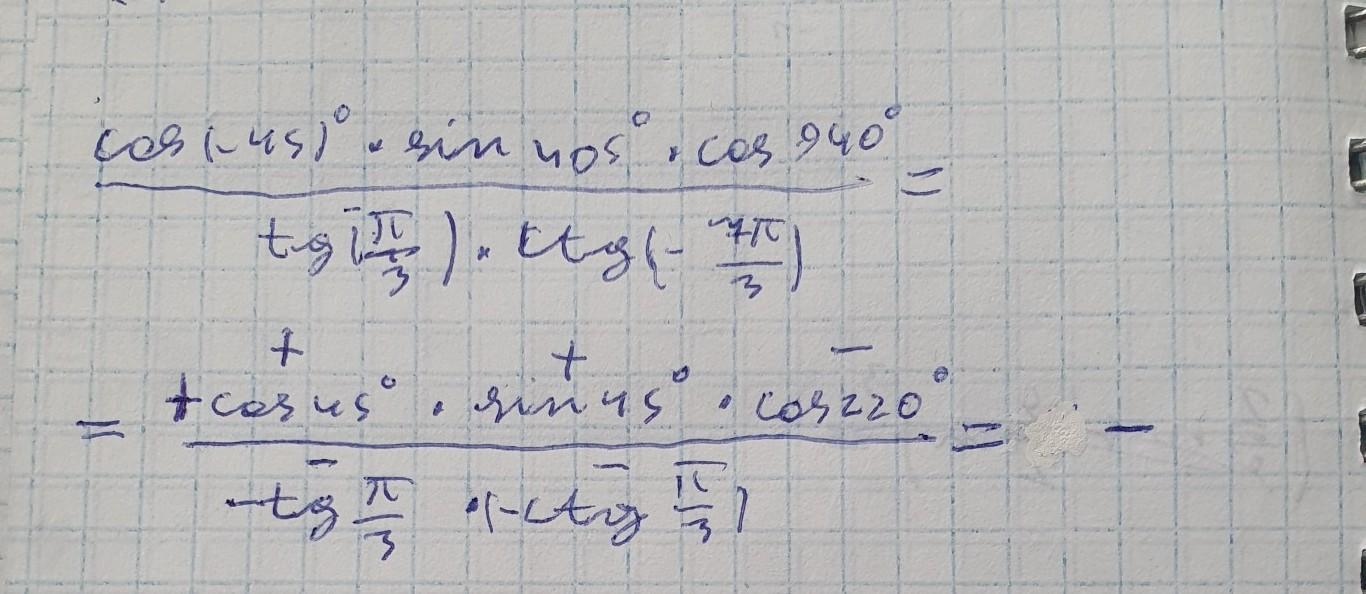 cos(-45)° · sin 405° · cos 940° =
tg(-π/3) · ctg(-7π/3)
+ + -
= +cos45° · sin45° · cos220° = -
- - 
-tg π/3 · (-ctg π/3)